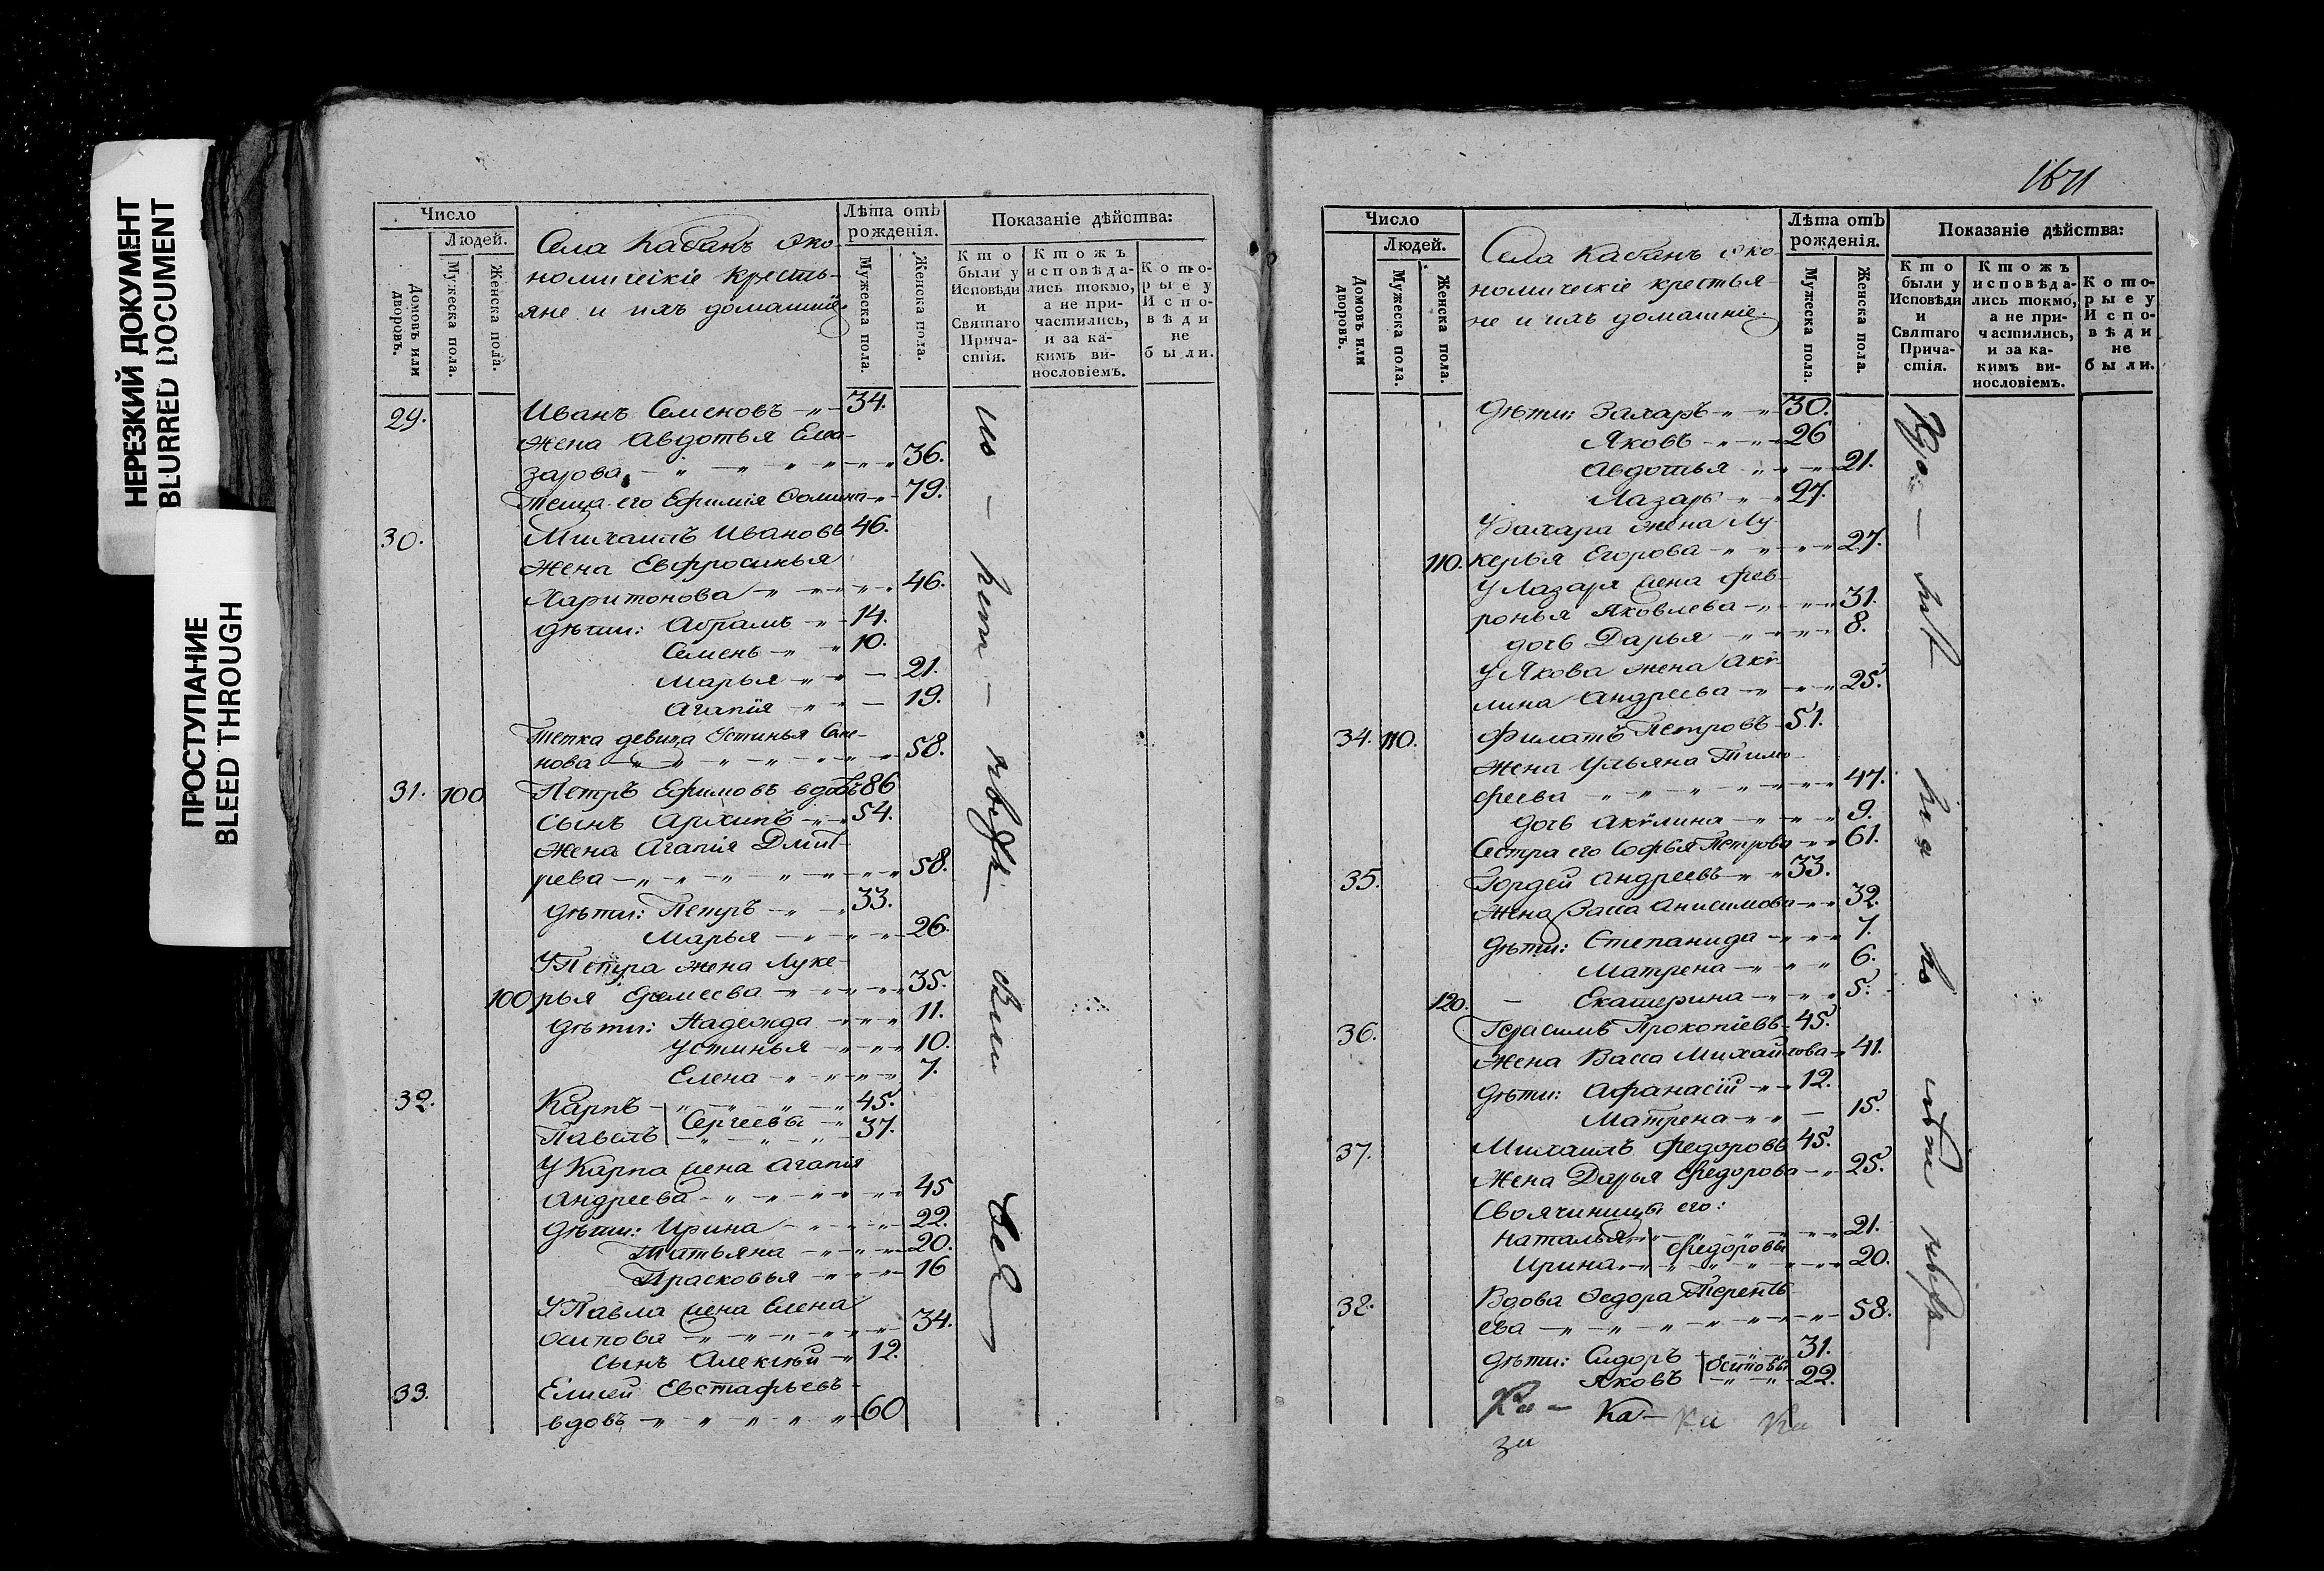 НЕРЕЗКИЙ ДОКУМЕНТ
BLURRED DOCUMENT
ПРОСТУПАНИЕ
BLEED THROUGH
Число
Людей.
Домовъ или дворовъ.
Мужеска пола.
Женска пола.
Села Кабанъ Эко-
номическіе кресть-
яне и ихъ домашніе.
Лѣта отъ рожденія.
Мужеска пола.
Женска пола.
Показаніе дѣйства:
Кто были у Исповѣди и Святаго Прича-стія.
Ктожъ исповѣда-лись токмо, а не при-частились, и за ка-кимъ ви-нословіемъ.
Кото-рые у Испо-вѣди не были.
29. Иванъ Семеновъ 34.
жена Авдотья Елea-
зарова 36.
теща его Ефимія Фомина 79.
30. Михаилъ Ивановъ 46.
жена Евфросинья
Харитонова 46.
дѣти: Абрамъ 14.
Семенъ 10.
Марья 21.
Агапія 19.
Тетка девица Устинья Семе-
нова 58.
31. 100 Петръ Ефимовъ вдовъ 86
сынъ Архипъ 54.
жена Агапія Дмит-
рева 58.
дѣти: Петръ 33.
Марья 26.
У Петра жена Луке-
100 рья Еремеева 35.
дѣти: Надежда 11.
Устинья 10.
Елена 7.
32. Карпъ 45.
Павелъ Сергеевы 37.
У Карпа жена Агапія
Андреева 45
дѣти: Ирина 22.
Татьяна 20.
Прасковья 16
У Павла жена Елена
Осипова 34.
сынъ Алексѣй 12.
33. Елисей Евстафьевъ
вдовъ 60
1671
Число
Людей.
Домовъ или дворовъ.
Мужеска пола.
Женска пола.
Села Кабанъ Эко-
номическіе крестья-
не и ихъ домашніе.
Лѣта отъ рожденія.
Мужеска пола.
Женска пола.
Показаніе дѣйства:
Кто были у Исповѣди и Святаго Прича-стія.
Ктожъ исповѣда-лись токмо, а не при-частились, и за ка-кимъ ви-нословіемъ.
Кото-рые у Испо-вѣди не были.
дѣти: Захаръ 30.
Яковъ 26
Авдотья 21.
Лазарь 27.
У Захара жена Лу-
110. керья Егорова 27.
У Лазаря жена Фев-
ронья Яковлева 31.
дочь Дарья 8.
У Якова жена Аку-
лина Андреева 25.
34. 110. Филатъ Петровъ 51.
жена Ульяна Тимо-
феева 47.
дочь Акулина 9.
Сестра его Софья Петрова 61.
35. Гордей Андреевъ 33.
жена Васса Анисимова 32.
дѣти: Степанида 7.
Матрена 6.
120. Екатерина 5.
36. Герасимъ Прокопіевъ 45.
жена Васса Михайлова 41.
дѣти: Афанасій 12.
Матрена 15.
37. Михаилъ Федоровъ 45.
жена Дарья Федорова 25.
Своячиницы его:
Наталья 21.
Ирина Федоровы 20.
38. Вдова Федора Теренть-
ева 58.
дѣти: Сидоръ 31.
Яковъ Осиповы 22.
Ка- Ка- Ка Ка
за